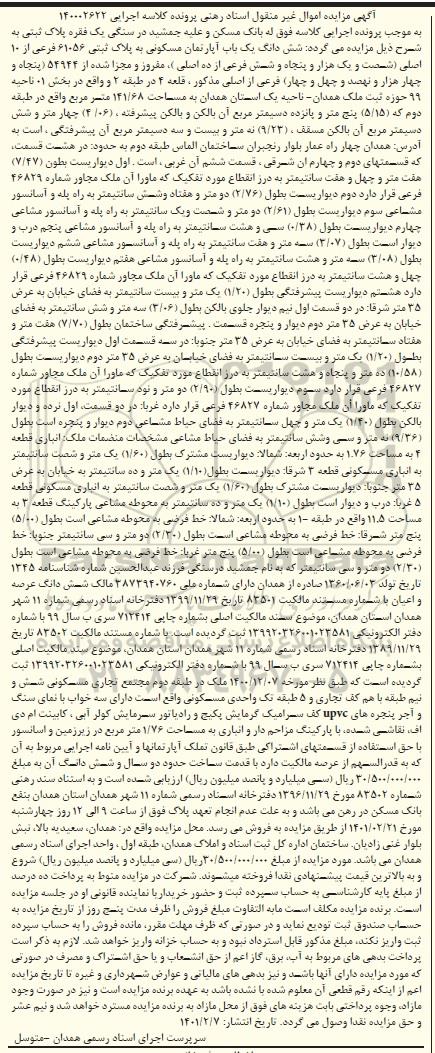 آگهی مزایده اموال غیر منقول اسناد رهنی پرونده کلاسه اجرایی ۱۴۰۰۰۲۶۲۲
به موجب پرونده اجرایی کلاسه فوق له بانک مسکن و علیه جمشید در سنگی یک فقره پلاک ثبتی به
شرح ذیل مزایده می گردد: شش دانگ یک باب آپارتمان مسکونی به پلاک ثبتی ۶۱۰۵۶ فرعی از ۱۰
اصلی (شصت و یک هزار و پنجاه و شش فرعی از ده اصلی )، مفروز و مجزا شده از ۵۴۹۴۴ (پنجاه و
چهار هزار و نهصد و چهل و چهار) فرعی از اصلی مذکور ، قطعه ۴ در طبقه ۲ و واقع در بخش ۰۱ ناحیه
۹۹ حوزه ثبت ملک همدان- ناحیه یک استان همدان به مساحت ۱۴۱/۶۸ متر مربع واقع در طبقه
دوم که (۵/۱۵) پنج متر و پانزده دسیمتر مربع آن بالکن و بالکن پیشرفته ، (۴/۰۶) چهار متر و شش
دسیمتر مربع آن بالکن مسقف ، (۹/۲۳) نه متر و بیست و سه دسیمتر مربع آن پیشرفتگی ، است به
آدرس: همدان چهار راه عمار بلوار رنجبران ساختمان الماس طبقه دوم به حدود: در هشت قسمت،
که قسمتهای دوم و چهارم ان شرقی ، قسمت ششم آن غربی ، است . اول دیواریست بطون (۷/۴۷)
هفت متر و چهل و هفت سانتیمتر به درز انقطاع مورد تفکیک که ماورا آن ملک مجاور شماره ۴۶۸۲۹
فرعی قرار دارد دوم دیواریست بطول (۲/۷۶) دو متر و هفتاد وشش سانتیمتر به راه پله و آسانسور
مشاعی سوم دیواریست بطول (۲/۶۱) دو متر و شصت ویک سانتیمتر به راه پله و آسانسور مشاعی
چهارم دیواریست بطول (۰/۳۸) سی و هشت سانتیمتر به راه پله و آسانسور مشاعی پنجم درب و
دیوار است بطول (۳/۰۷) سه متر و هفت سانتیمتر به راه پله و آسانسور مشاعی ششم دیواریست
بطول (۳/۰۸) سه متر و هشت سانتیمتر به راه پله و آسانسور مشاعی هفتم دیواریست بطول (۰/۴۸)
چهل و هشت سانتیمتر به درز انقطاع مورد تفکیک که ماورا آن ملک مجاور شماره ۴۶۸۲۹ فرعی قرار
دارد هشتم دیواریست پیشرفتگی بطول (۱/۲۰) یک متر و بیست سانتیمتر به فضای خیابان به عرض
۳۵ متر شرقا: در دو قسمت اول نیم دیوار جلوی بالکن بطول (۳/۰۶) سه متر و شش سانتیمتر به فضای
خیابان به عرض ۳۵ متر دوم دیوار و پنجره قسمت . پیشرفتگی ساختمان بطول (۷/۷۰) هفت متر و
هفتاد سانتیمتر به فضای خیابان به عرض ۳۵ متر جنوبا: در سه قسمت اول دیواریست پیشرفتگی
بطول (۱/۲۰) یک متر و بیست سانتیمتر به فضای خیابان به عرض ۳۵ متر دوم دیواریست بطول
(۱۰/۵۸) ده متر و پنجاه و هشت سانتیمتر به درز انقطاع مورد تفکیک که ماورا آن ملک مجاور شماره
۴۶۸۲۷ فرعی قرار دارد سوم دیواریست بطول (۲/۹۰) دو متر و نود سانتیمتر به درز انقطاع مورد
تفکیک که ماورا آن ملک مجاور شماره ۴۶۸۲۷ فرعی قرار دارد غربا: در دو قسمت، اول نرده و دیوار
بالکن بطول (۱/۴۰) یک متر و چهل سانتیمتر به فضای حیاط مشاعی دوم دیوار و پنجره است بطول
(۹/۳۶) نه متر و سی وشش سانتیمتر به فضای حیاط مشاعی مشخصات منضمات ملک: انباری قطعه
۴ به مساحت ۱.۷۶ به حدود اربعه: شمالا: دیواریست مشترک بطول (۱/۶۰) یک متر و شصت سانتیمتر
به انباری مسکونی قطعه ۳ شرقا: دیواریست بطول(۱/۱۰) یک متر و ده سانتیمتر به خیابان به عرض
۳۵ متر جنوبا: دیواریست مشترک بطول (۱/۶۰) یک متر و شصت سانتیمتر به انباری مسکونی قطعه
۵ غربا: درب و دیوار است بطول (۱/۱۰) یک متر و ده سانتیمتر به محوطه مشاعی پارکینگ قطعه ۳ به
مساحت ۱۱.۵ واقع در طبقه ۱- به حدود اربعه: شمالا: خط فرضی به محوطه مشاعی است بطول (۵/۰۰)
پنج متر شرقا: خط فرضی به محوطه مشاعی است بطول (۲/۳۰) دو متر و سی سانتیمتر جنوبا: خط
فرضی به محوطه مشاعی است بطول (۵/۰۰) پنج متر غربا: خط فرضی به محوطه مشاعی است بطول
(۲/۳۰) دو متر و سی سانتیمتر که به نام جمشید درسنگی فرزند عبدالحسین شماره شناسنامه ۱۳۴۵
تاریخ تولد ۱۳۶۰/۰۶/۰۳ صادره از همدان دارای شماره ملی ۳۸۷۳۹۴۰۷۶۰ مالک شش دانگ عرصه
و اعیان با شماره مستند مالکیت ۸۳۵۰۱ تاریخ ۱۳۹۹/۱۱/۲۹ دفترخانه اسناد رسمی شماره ۱۱ شهر
همدان استان همدان، موضوع سند مالکیت اصلی بشماره چاپی ۷۱۲۴۱۴ سری ب سال ۹۹ با شماره
دفتر الکترونیکی ۱۳۹۹۲۰۳۲۶۰۰۱۰۲۳۵۸۱ ثبت گردیده است. با شماره مستند مالکیت ۸۳۵۰۲ تاریخ
۱۳۸۹/۱۱/۲۹ دفترخانه اسناد رسمی شماره ۱۱ شهر همدان استان همدان، موضوع سند مالکیت اصلی
بشماره چاپی ۷۱۲۴۱۴ سری ب سال ۹۹ با شماره دفتر الکترونیکی ۱۳۹۹۲۰۳۲۶۰۰۱۰۲۳۵۸۱ ثبت
گردیده است که طبق نظر مورخه ۱۴۰۰/۱۲/۰۷ ملک در طبقه دوم مجتمع تجاری مسکونی شش و
نیم طبقه با هم کف تجاری و ۵ طبقه تک واحدی مسکونی واقع است دارای سه خواب با نمای سنگ
و آجر پنجره های upvc کف سرامیک گرمایش پکیج و رادیاتور سرمایش کولر آبی ، کابینت ام دی
اف، نقاشی شده، با پارکینگ مزاحم دار و انباری به مساحت ۱/۷۶ متر مربع در زیرزمین و اسانسور
با حق استفاده از قسمتهای اشتراکی طبق قانون تملک آپارتمانها و آیین نامه اجرایی مربوط به آن
که به قدرالسهم از عرصه مالکیت دارد با قدمت ساخت حدود دو سال و شش دانگ آن به مبلغ
۳۰/۵۰۰/۰۰۰/۰۰۰ ریال (سی میلیارد و پانصد میلیون ریال) ارزیابی شده است و به استناد سند رهنی
شماره ۸۳۵۰۲ مورخ ۱۳۹۶/۱۱/۲۹ دفترخانه اسناد رسمی شماره ۱۱ شهر همدان استان همدان بنفع
بانک مسکن در رهن می باشد و به علت عدم انجام تعهد پلاک فوق از ساعت ۹ الی ۱۲ روز چهارشنبه
مورخ ۱۴۰۱/۰۲/۲۱ از طریق مزایده به فروش می رسد. محل مزایده واقع در: همدان، سعیدیه بالا، نبش
بلوار غنی زادیان. ساختمان اداره کل ثبت اسناد و املاک همدان، طبقه اول ، واحد اجرای اسناد رسمی
همدان می باشد. مورد مزایده از مبلغ ۳۰/۵۰۰/۰۰۰/۰۰۰ریال (سی میلیارد و پانصد میلیون ریال) شروع
و به بالاترین قیمت پیشنهادی نقدا فروخته میشوند. شرکت در مزایده منوط به پرداخت ده درصد
از مبلغ پایه کارشناسی به حساب سپرده ثبت و حضور خریدار یا نماینده قانونی او در جلسه مزایده
است. برنده مزایده مکلف است مابه التفاوت مبلغ فروش را ظرف مدت پنج روز از تاریخ مزایده به
حساب صندوق ثبت تودیع نماید و در صورتی که ظرف مهلت مقرر، مانده فروش را به حساب سپرده
ثبت واریز نکند، مبلغ مذکور قابل استرداد نبود و به حساب خزانه واریز خواهد شد. لازم به ذکر است
پرداخت بدهی های مربوط به آب، برق، گاز اعم از حق انشعاب و یا حق اشتراک و مصرف در صورتی
که مورد مزایده دارای آنها باشد و نیز بدهی های مالیاتی و عوارض شهرداری و غیره تا تاریخ مزایده
اعم از اینکه رقم قطعی آن معلوم شده یا نشده باشد به عهده برنده مزایده است و نیز در صورت وجود
مازاد، وجوه پرداختی بابت هزینه های فوق از محل مازاد به برنده مزایده مسترد خواهد شد و نیم عشر
و حق مزایده نقدا وصول می گردد. تاریخ انتشار: ۱۴۰۱/۲/۷
سرپرست اجرای اسناد رسمی همدان -متوسل